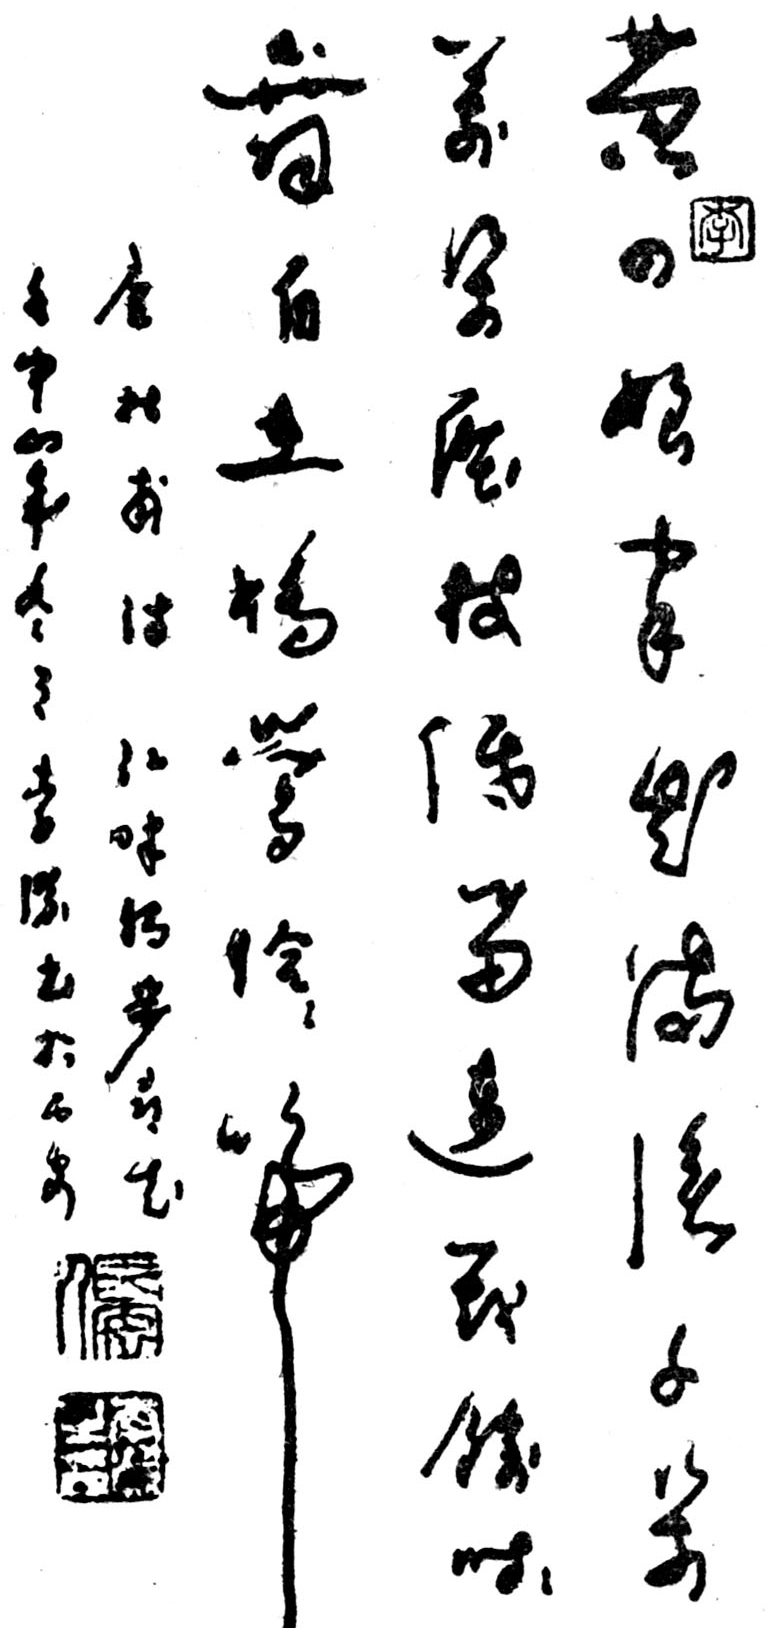 黄四娘家花满蹊千朵
李
万朵压枝低留连戏蝶时时
舞自在娇莺恰恰啼
唐杜甫诗 江畔独步寻花
壬申年冬 李 书于西安